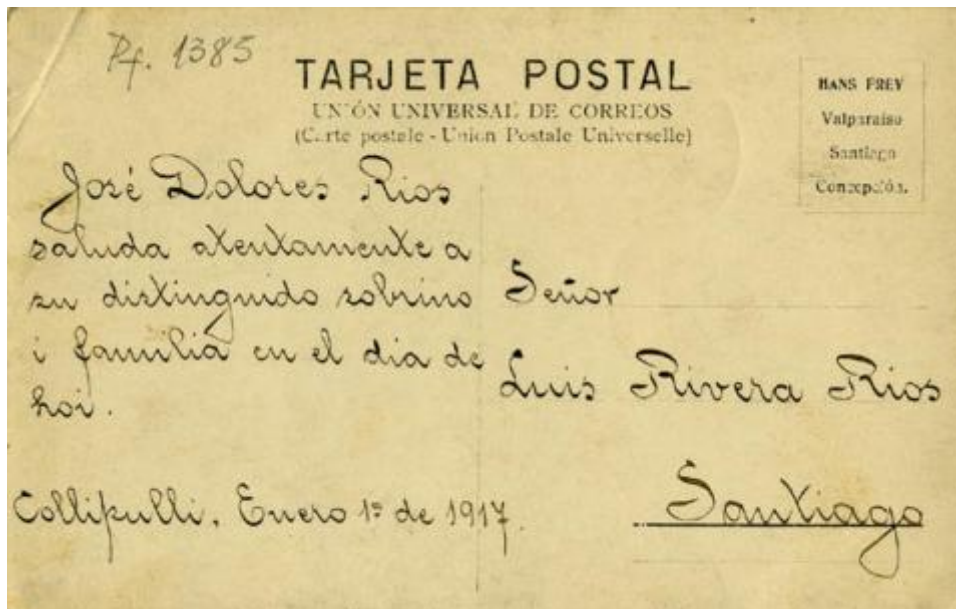 Pf. 1385
TARJETA POSTAL
UNIÓN UNIVERSAL DE CORREOS
(Carte postale - Union Postale Universelle)
HANS FREY
Valparaiso
Santiago
Concepción.
José Dolores Rios
saluda atentamente a
su distinguido sobrino
i familia en el dia de
hoi.
Collipulli, Enero 1º de 1917.
Señor
Luis Rivera Rios
Santiago